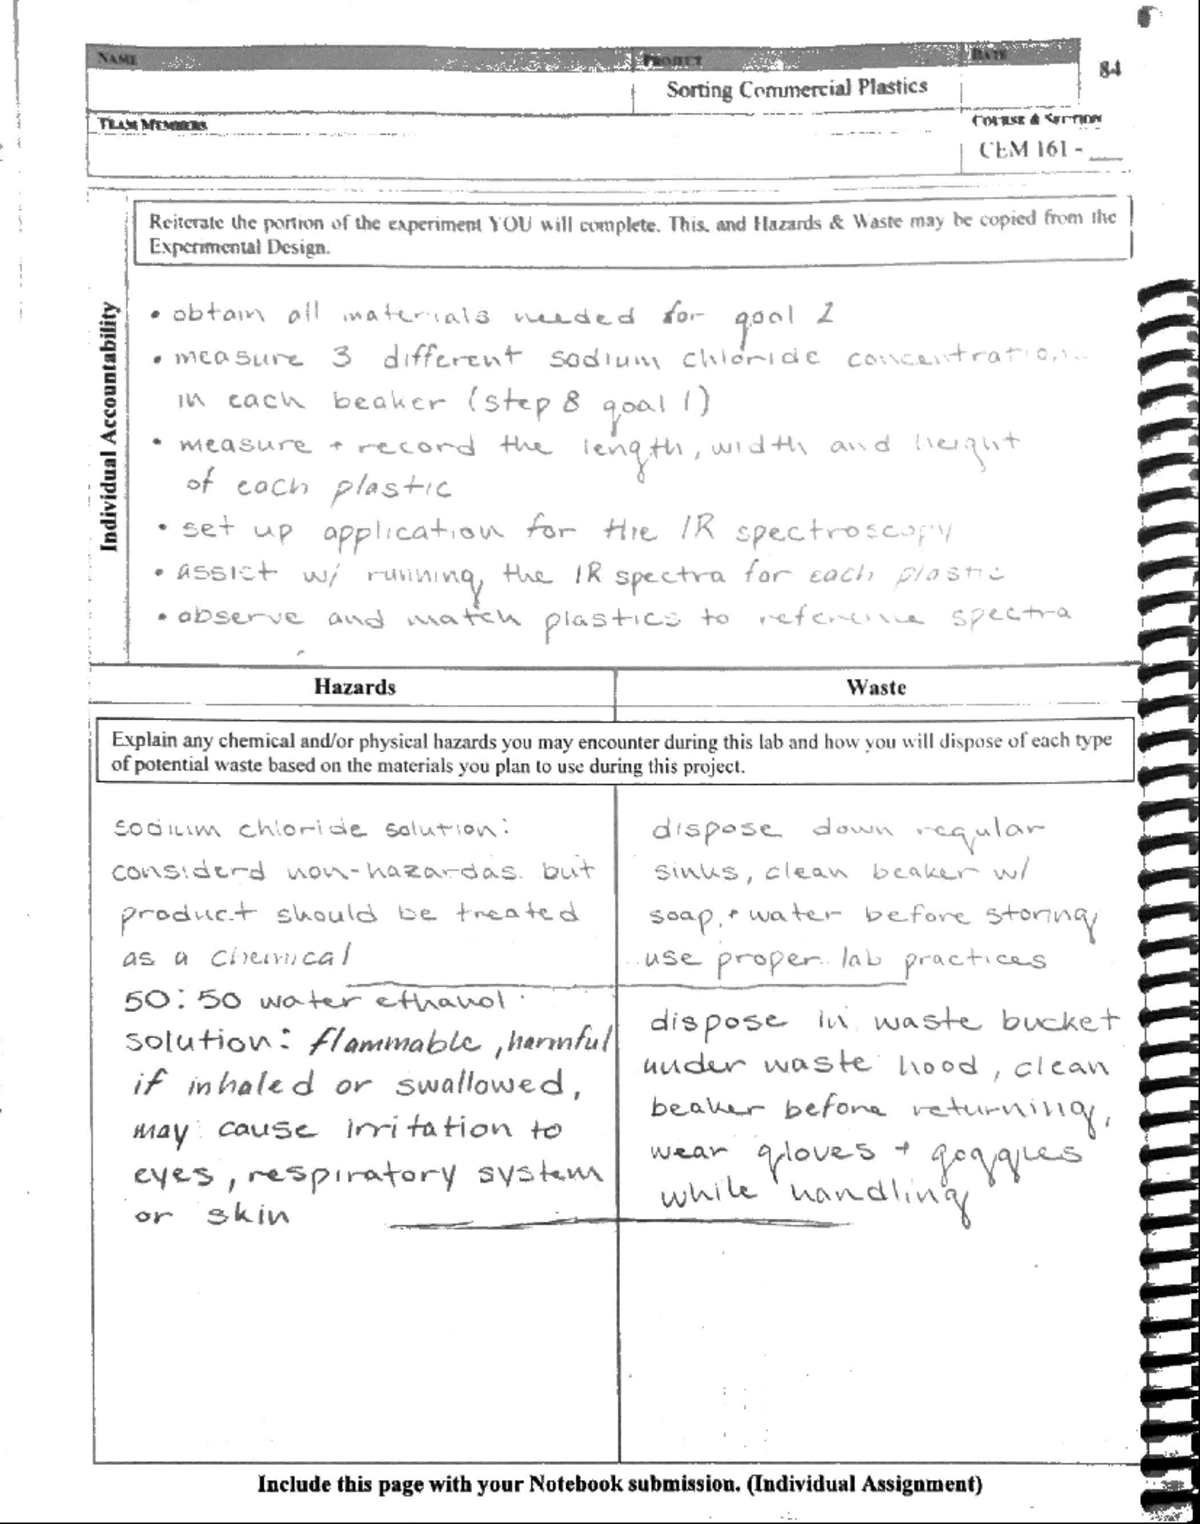 NAME
PROJECT
DATE
84
Sorting Commercial Plastics
TEAM MEMBERS
COURSE & SECTION
CEM 161 - ___
Individual Accountability
Reiterate the portion of the experiment YOU will complete. This, and Hazards & Waste may be copied from the
Experimental Design.
• obtain all materials needed for goal 2
• measure 3 different sodium chloride concentration
in each beaker (step 8 goal 1)
• measure + record the length, width and height
of each plastic
• set up application for the IR spectroscopy
• assist w/ running the IR spectra for each plastic
• observe and match plastics to reference spectra
Hazards
Waste
Explain any chemical and/or physical hazards you may encounter during this lab and how you will dispose of each type
of potential waste based on the materials you plan to use during this project.
sodium chloride solution:
considerd non-hazardas but
product should be treated
as a chemical
50:50 water ethanol
solution: flammable, harmful
if inhaled or swallowed,
may cause irritation to
eyes, respiratory system
or skin
dispose down regular
sinks, clean beaker w/
soap + water before storing
use proper lab practices
dispose in waste bucket
under waste hood, clean
beaker before returning,
wear gloves + goggles
while handling
Include this page with your Notebook submission. (Individual Assignment)